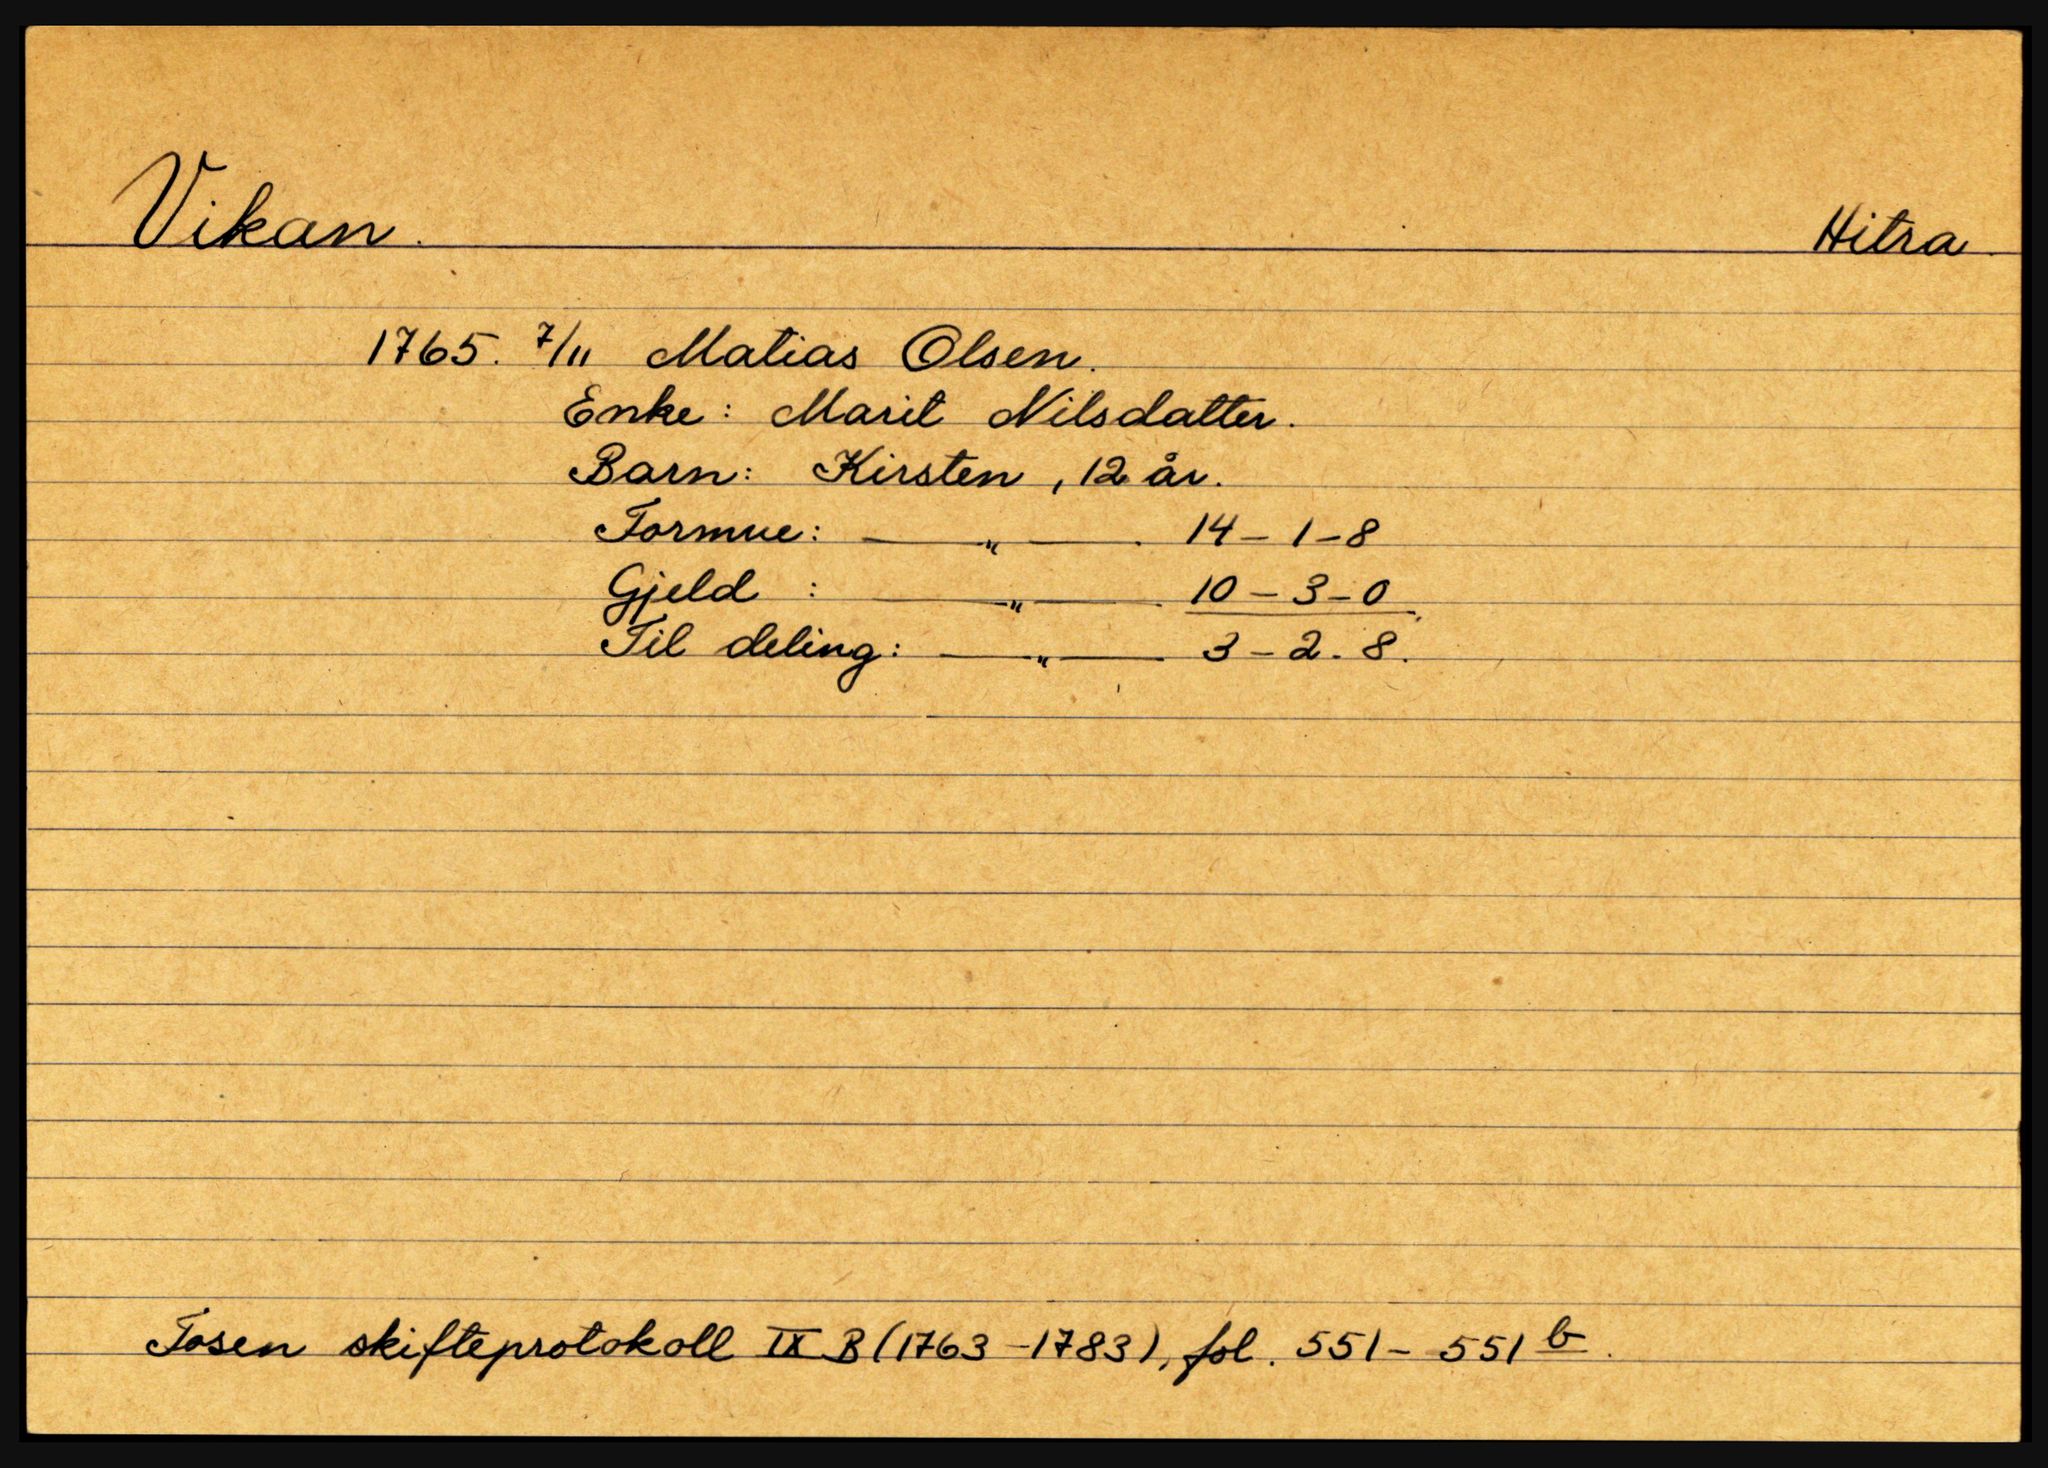 Vikan. Hitra.
1765. 7/11 Matias Olsen.
Enke: Marit Nilsdatter.
Barn: Kirsten, 12 år.
Formue: — „ — . 14 – 1 – 8
Gjeld : — „ — . 10 – 3 – 0.
Til deling: — „ — . 3 – 2 . 8.
Fosen skifteprotokoll IX B (1763 – 1783), fol. 551 – 551 b.